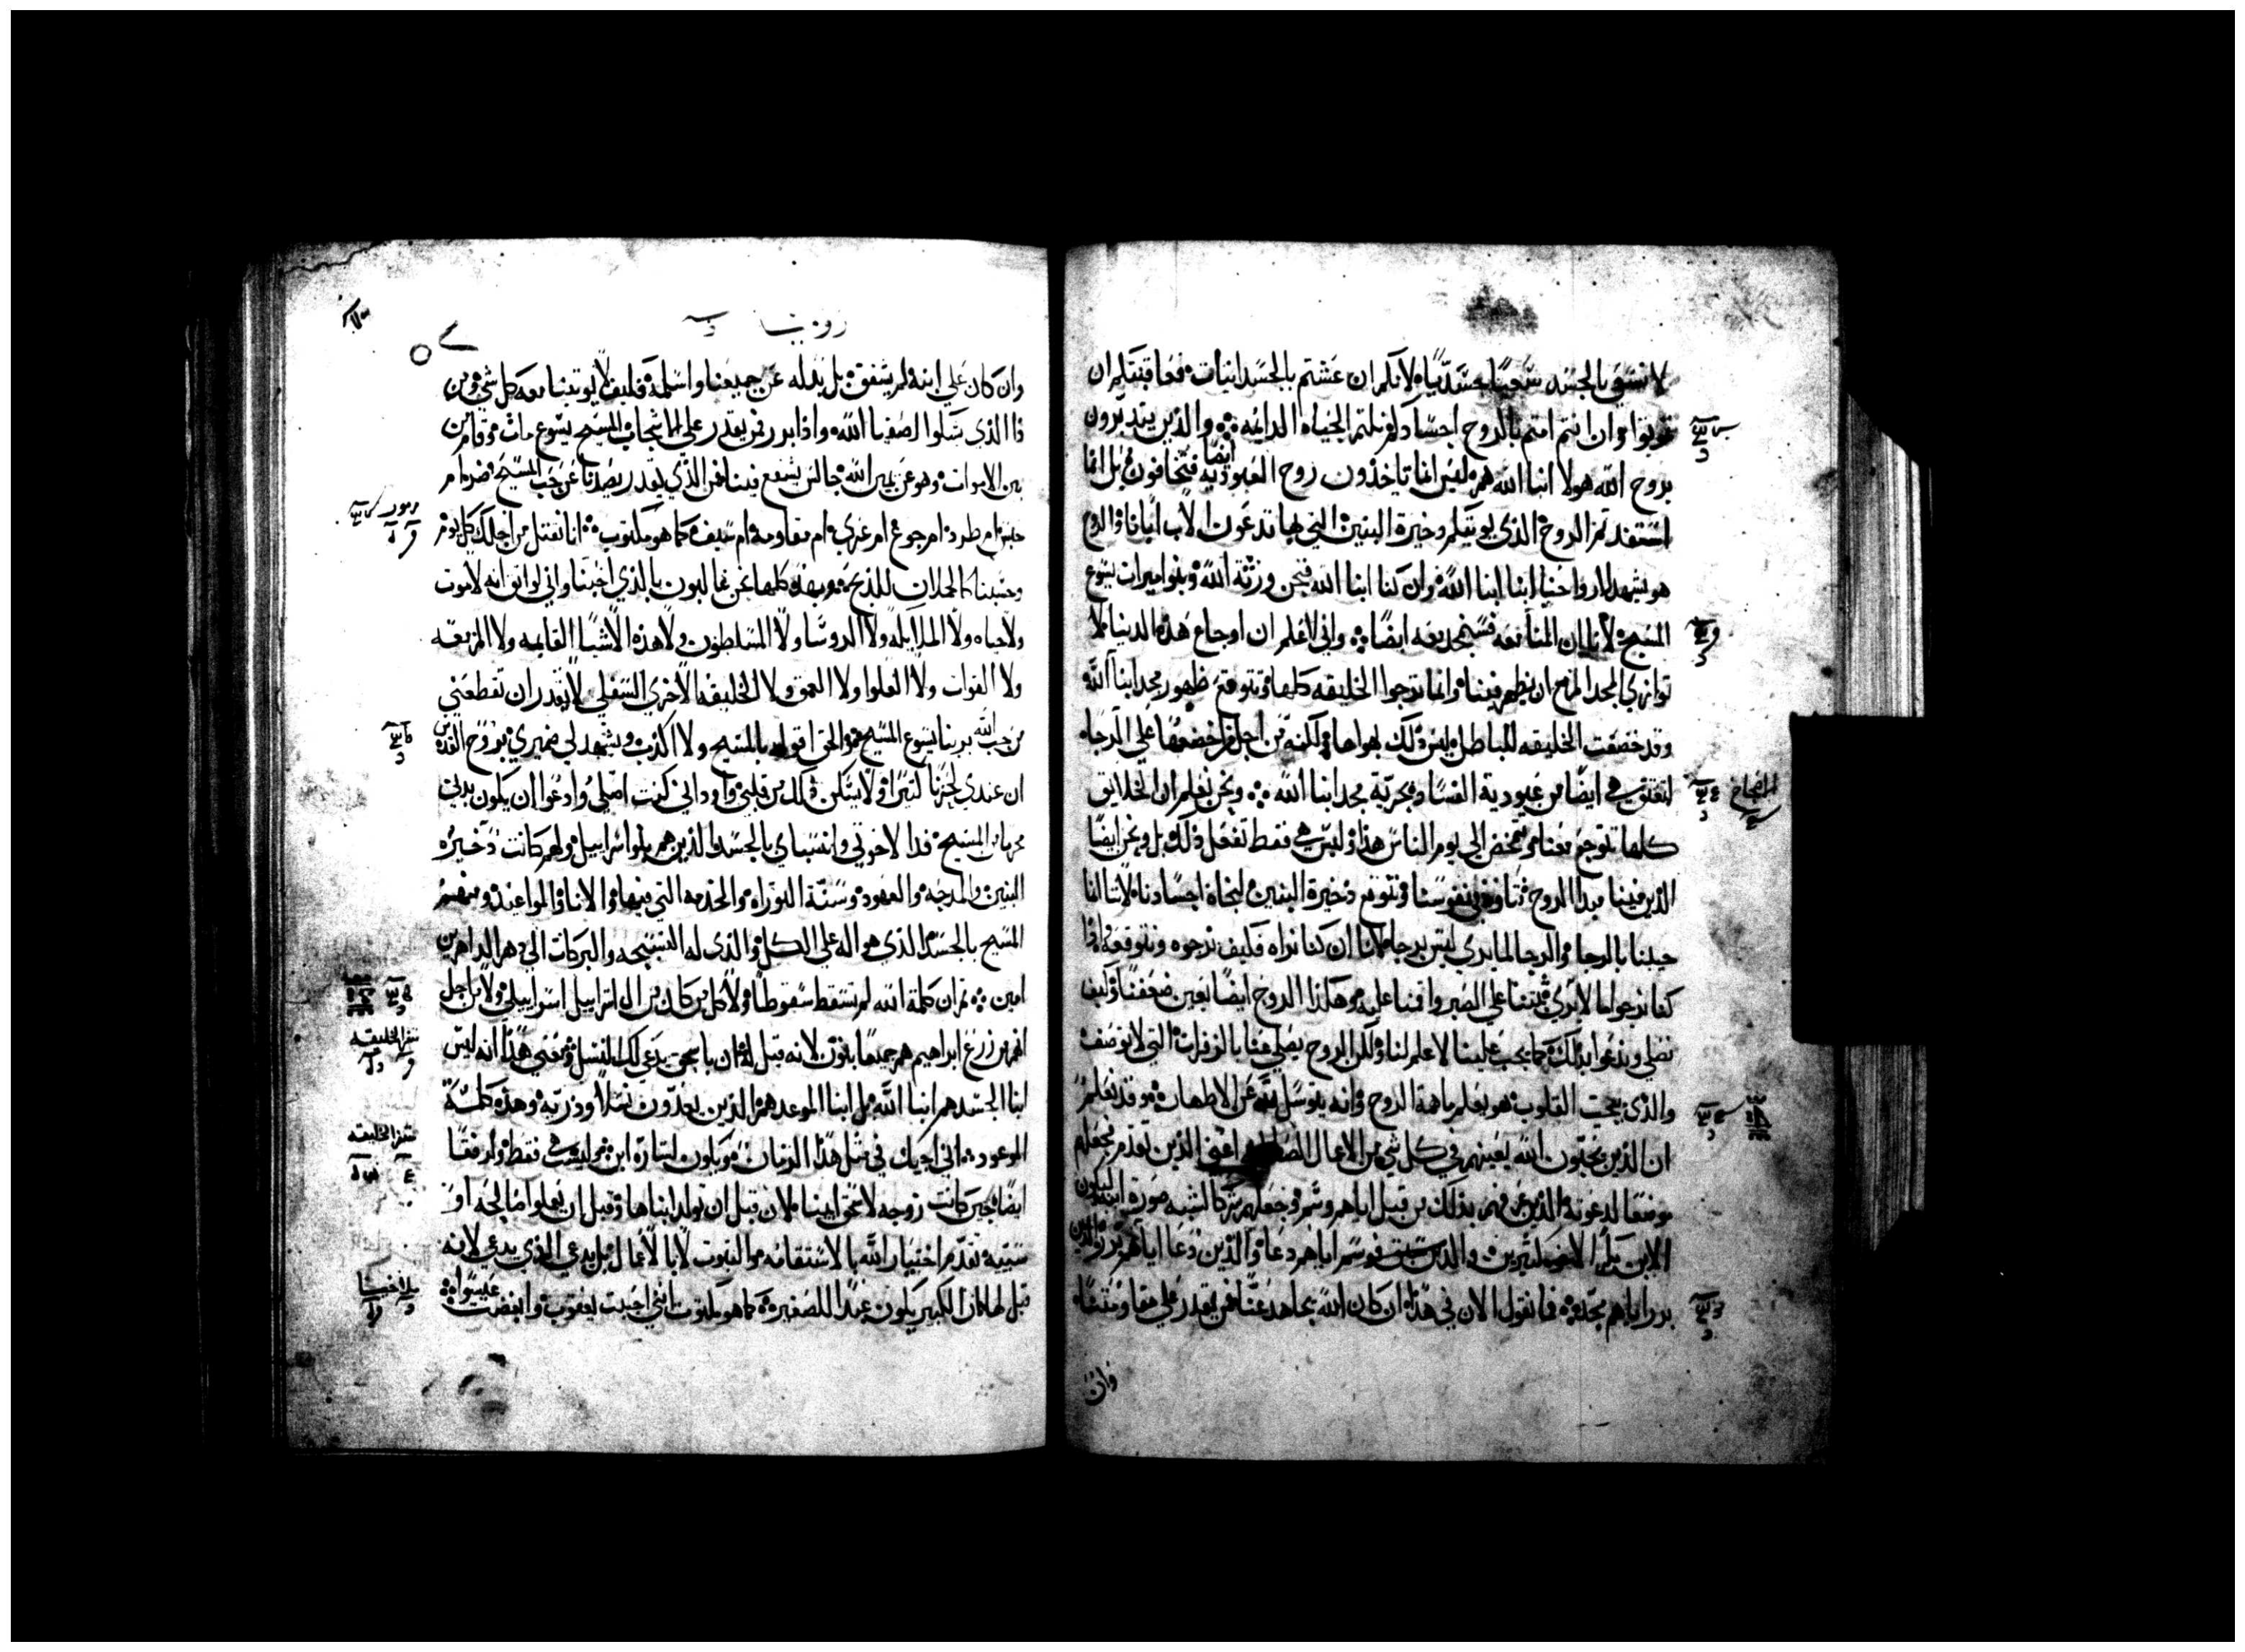 لا نسعي بالجسد سعيا جسدانيا لانكم ان عشتم بالجسدانيات فعاقبتكم ان
تموتوا وان انتم امتم بالروح اجسادكم نلتم الحياه الدايمه والذين يتدبرون
بروح الله هولا ابنا الله هم ليس انما تاخذون روح العبوديه ايضا فتخافون بل انما
استفدتم الروح الذي يوتيكم دخيرة البنين التي بها تدعون الاب ابانا والروح
هو يشهد لارواحنا اننا ابنا الله وان كنا ابنا الله فنحن ورثة الله وبنو ميراث يسوع
المسيح لانا ان المنا معه فسنمجد معه ايضا واني لاعلم ان اوجاع هذه الدنيا لا
توازي المجد المزمع ان يظهر فينا وانما ترجوا الخليقه كلها وتتوقع ظهور مجد ابنا الله
وقد خضعت الخليقه للباطل ليس ذلك بهواها ولكنه من اجل من اخضعها علي الرجاه
لتعتق هي ايضا من عبودية الفساد بحرية مجد ابنا الله ونحن نعلم ان الخلايق
كلها تتوجع معنا وتتمخض الي يوم الناس هذا وليس هي فقط تفعل ذلك بل ونحن ايضا
الذين فينا مبدا الروح نتاوه في نفوسنا ونتوقع دخيرة البنين لنجاة اجسادنا لانا انما
حيينا بالرجا والرجا لما يري ليس برجا لانا ان كنا نراه فكيف نرجوه ونتوقعه واذا
كنا نرجوا ما لا يري ثبتنا علي الصبر واقمنا عليه وهكذا الروح ايضا يعين ضعفنا وكيف
نصلي وندعوا بذلك كما يجب علينا لا علم لنا ولكن الروح يصلي عنا بالزفرات التي لا توصف
والذي يجيب القلوب هو يعلم ما همة الروح وانه يتوسل لله عن الاطهار وقد نعلم
ان الذين يحبون الله يعينهم في كل شي من الاعمال الصالحه اعني الذين تقدم فجعلهم
موضعا لدعوته والذين عرفهم بذلك من قبل اياهم وسم وجعلهم شركا لشبه صورة ابنه ليكون
الابن بكرا لاخوه كثيرين والذين سبق فوسم اياهم دعا والذين دعا اياهم برر والذين
برر اياهم مجد فما نقول الان في هذا ان كان الله يجاهد عنا فمن يقدر علي مقاومتنا
وان
روميه
وان كان علي ابنه لم يشفق بل بذله عن جميعنا واسلمه فكيف لا يوتينا معه كل شي ومن
ذا الذي يشكوا اصفيا الله واذا برر فمن يقدر علي الاشجاب المسيح يسوع مات وقام من
بين الاموات وهو عن يمين الله جالس يشفع فينا فمن الذي يقدر يصدنا عن حب المسيح ضر ام
حبس ام طرد ام جوع ام عري ام مقاومه ام سيف كما هو مكتوب انا نقتل من اجلك كل يوم
وحسبنا كالحملان للذبح وبهذه كلها نحن غالبون بالذي احبنا واني لواثق انه لا موت
ولا حياه ولا الملايكه ولا الروسا ولا المسلطون ولا هذه الاشيا القايمه ولا المزمعه
ولا القوات ولا العلوا ولا العمق ولا الخليقه الاخري السفلي لا تقدر ان تقطعني
من حب الله بربنا يسوع المسيح والحق اقول بالمسيح ولا اكذب ويشهد لي ضميري بروح القدس
ان عندي لحزنا كبيرا ولا يسكن ذلك من قلبي واود اني كنت اصلي وادعوا ان يكون بدني
محرما من المسيح فدا لاخوتي وانسباي بالجسد الذين هم بنوا اسراييل ولهم كانت ذخيره
البنين والمدحه والعهود وسنة التوراه والخدمه التي فيها والابا والمواعيد ومنهم
المسيح بالجسد الذي هو اله علي الكل والذي له التسبيحه والبركات الي دهر الداهرين
امين ثم ان كلمة الله لم تسقط سقوطا ولا كل من كان من ال اسراييل اسراييلي ولا من اجل
انهم من زرع ابراهيم هم جميعا بنون لانه قيل له ان باسحق يدعي لك النسل ومعني هذا انه ليس
ابنا الجسد هم ابنا الله بل ابنا الموعد هم الذين يعدون نسلا وذريه وهذه كلمة
الموعود اني اجيك في مثل هذا الزمان ويكون لساره ابن وليس هي فقط ورفقا
ايضا حين كانت زوجه لاسحق ابينا لان قبل ان تولد ابناها وقبل ان يعملوا صالحه او
سييه تقدم اختيار الله بالاستقامه والثبوت لا بالاعمال بل بدعي الذي يدعي لانه
قيل لها ان الكبير يكون عبدا للصغير كما هو مكتوب انني احببت يعقوب وابغضت عيسوا
مزمور
سفر الخليقه
سفر الخليقه
ملاخيا